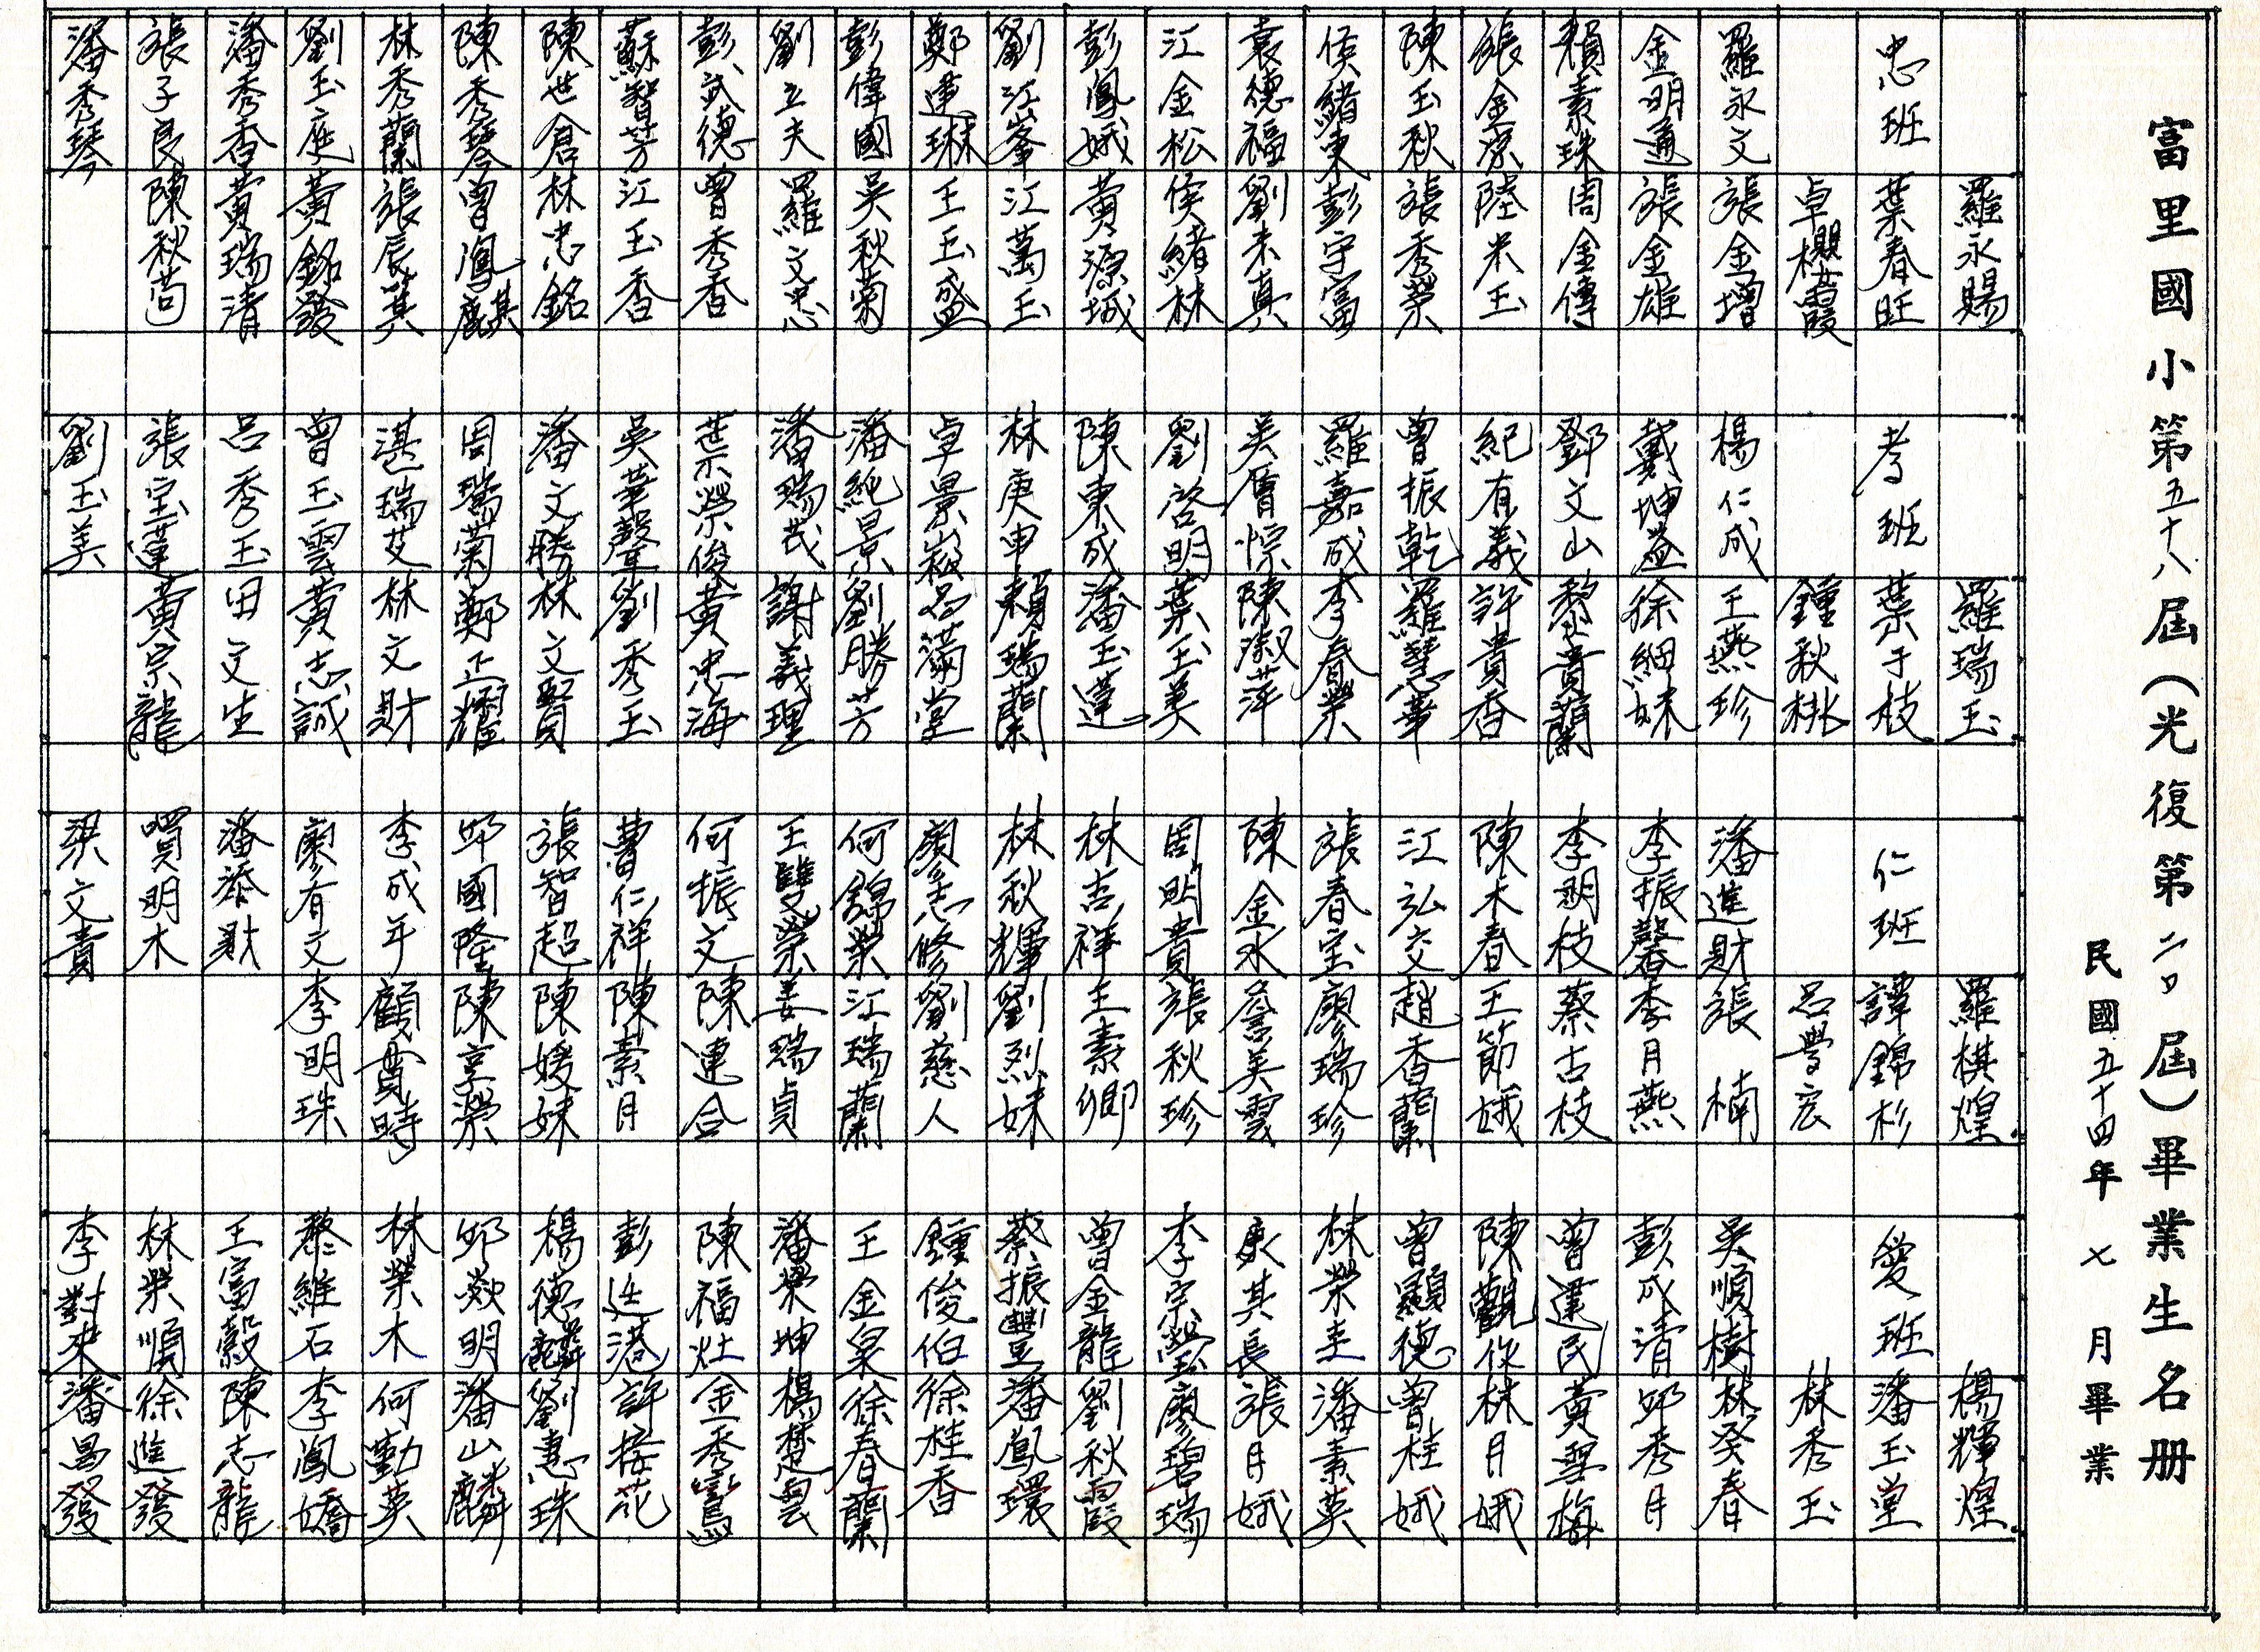 富里國小第五十八屆(光復第二0屆)畢業生名册
民國五十四年 七 月畢業
羅永賜 羅瑞玉 羅棋煌 楊輝煌
忠班 葉春旺 孝班 葉于枝 仁班 譚錦杉 愛班 潘玉堂
卓櫻霞 鍾秋桃 呂學宏 林秀玉
羅永文 張金增 楊仁成 王燕珍 潘進財 張楠 吳順樹 林癸春
金明通 張金雄 戴坤益 徐細妹 李振馨 李月燕 彭成清 邱秀月
賴素珠 周金傳 鄧文山 黎貴蘭 李明枝 蔡古枝 曾運民 黃聖梅
張金 陸米玉 紀有義 許貴香 陳木春 王節娥 陳觀伙 林月娥
陳玉秋 張秀榮 曾振乾 羅慧華 江弘交 趙香蘭 曾顯德 曾桂娥
侯緒東 彭守富 羅嘉成 李春榮 張春宝 廖瑞珍 林榮圭 潘素英
袁德福 劉未真 吳賡 陳淑萍 陳金水 詹美雲 其長 張月娥
江金松 侯緒林 劉啓明 葉玉美 周明貴 張秋珍 李宗瑩 廖碧瑞
彭鳳娥 黃源城 陳東成 潘玉蓮 林吉祥 王素卿 曾金龍 劉秋霞
劉江峯 江萬玉 林庚申 賴瑞蘭 林秋輝 劉烈妹 蔡振豐 潘鳳環
鄭連琳 王玉盛 卓景嶽 呂滿堂 廖志修 劉慈人 鍾俊伯 徐桂香
彭偉國 吳秋菊 潘純景 劉勝芳 何錦榮 江瑞蘭 王金泉 徐春蘭
劉立夫 羅文忠 潘瑞茂 謝義理 王雙榮 姜瑞貞 潘榮坤 楊楚雲
彭武德 曾秀香 葉榮俊 黃忠海 何振文 陳連合 陳福灶 金秀鸞
蘇智芳 江玉香 吳華聲 劉秀玉 曹仁祥 陳素月 彭進港 許接花
陳世倉 林忠銘 潘文勝 林文賢 張智超 陳嫒妹 楊德麟 劉惠珠
陳秀琴 曾鳳麒 周瑞菊 鄭正耀 邱國隆 陳享榮 邱燚明 潘山麟
林秀蘭 張辰英 湛瑞 林文財 李成年 顧貴時 林榮木 何勤英
劉玉庭 黃銘發 曾玉雲 黃志誠 廖有文 李明珠 黎維石 李鳳嬌
潘秀香 黃瑞清 呂秀玉 田文生 潘添財 王富穀 陳志龍
張子良 陳秋 張宝蓮 黃宗龍 明木 林榮順 徐進發
潘秀琴 劉玉美 梁文貴 李對來 潘昌發